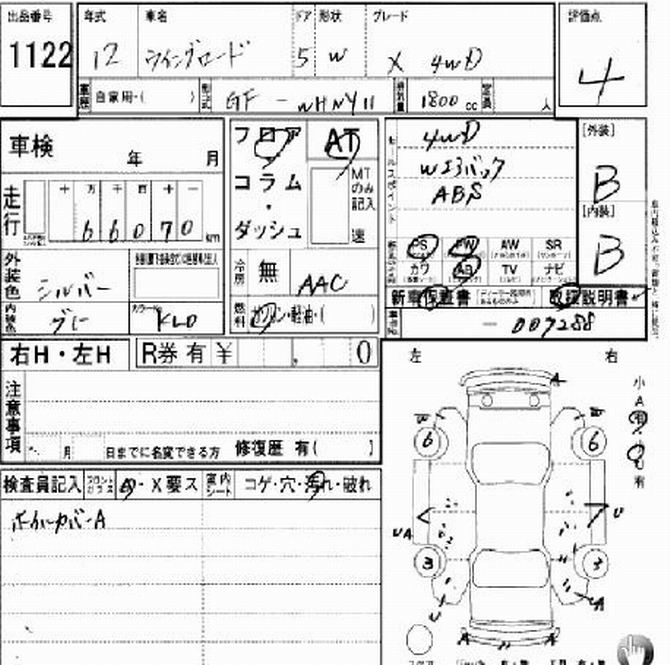 出品番号 年式 車名 ドア 形状 グレード 評価点
1122 12 ウイングロード 5 W X 4WD 4
車歴 自家用・( ) 型式 GF - WHNY11 排気量 1800 cc 定員 人
車検 年 月
フロア AT
コラム・ダッシュ
MTのみ記入 速
セールスポイント
4WD
Wエアバック
ABS
[外装]
B
[内装]
B
走行 十 万 千 百 十 一
6 6 0 7 0 km
PS PW AW SR
カワ AB TV ナビ
新車保証書 取扱説明書
外装色 シルバー
内装色 グレー カラーNo. KL0
冷房 無 AAC
燃料 ガソリン・軽油・( )
車台No. - 007288
右H・左H R券 有 ¥ , 0
注意事項
月 日までに名変できる方 修復歴 有( )
検査員記入 フロントガラス A・X要ス 室内シート コゲ・穴・汚れ・破れ
ホイルカバーA
左 右
A
W W
6 6
U U
UA
3 3
A
A A